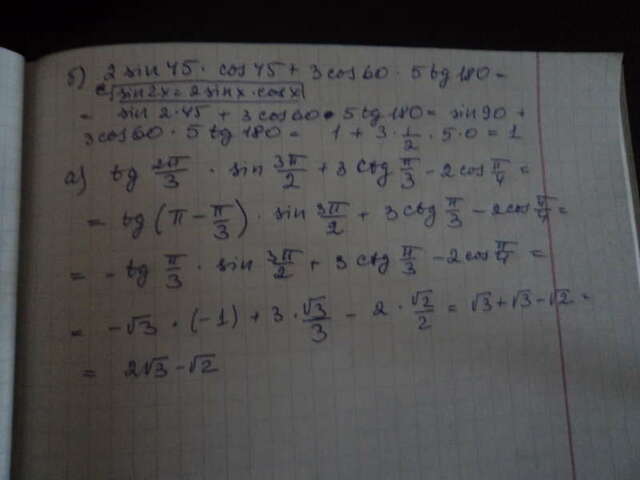 б) 2 sin 45 · cos 45 + 3 cos 60 · 5 tg 180 =
sin 2x = 2 sin x · cos x
= sin 2·45 + 3 cos 60 · 5 tg 180 = sin 90 +
3 cos 60 · 5 tg 180 = 1 + 3 · 1/2 · 5 · 0 = 1
а) tg 2π/3 · sin 3π/2 + 3 ctg π/3 - 2 cos π/4 =
= tg (π - π/3) · sin 3π/2 + 3 ctg π/3 - 2 cos π/4 =
= - tg π/3 · sin 3π/2 + 3 ctg π/3 - 2 cos π/4 =
= -√3 · (-1) + 3 · √3/3 - 2 · √2/2 = √3 + √3 - √2 =
= 2√3 - √2